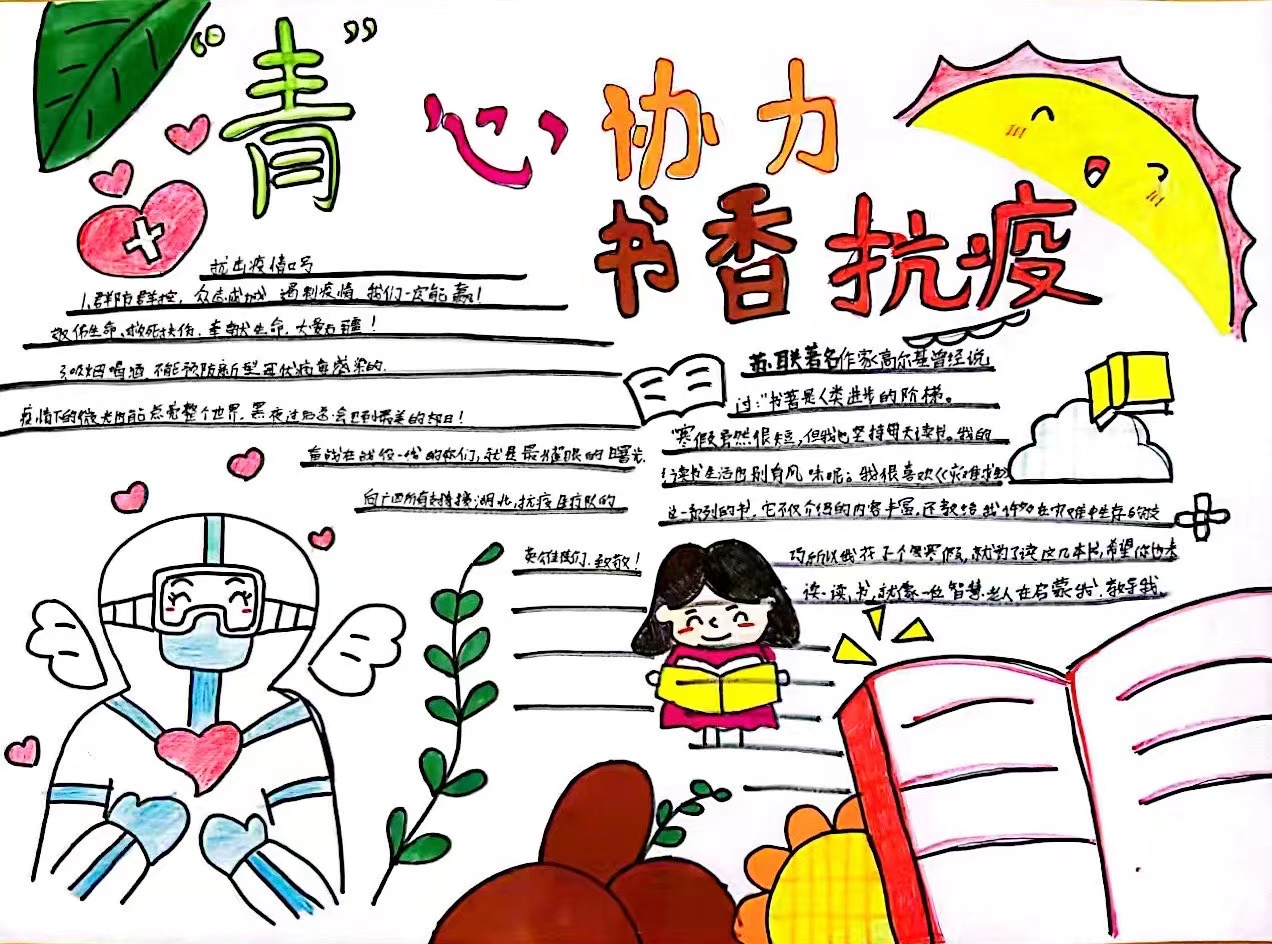 “青”心协力
书香抗疫
抗击疫情口号
1.群防群控,众志成城,遇到疫情,我们一定能赢!
敬佑生命、救死扶伤,奉献生命,大爱无疆!
3.吸烟喝酒,不能预防新型冠状病毒感染的.
疫情下的微光也能点亮整个世界,黑夜过后会见到最美的旭日!
奋战在战役一线的你们,就是最耀眼的曙光.
向广西所有支援湖北抗疫医疗队的
英雄们,致敬!
苏联著名作家高尔基曾经说
过:“书著是人类进步的阶梯。
寒假虽然很短,但我也坚持每天读书。我的
读书生活也别有风味呢。我很喜欢《灾难求生》
这一系列的书,它不仅介绍的内容丰富,还教给我们如何在灾难中生存的技
巧所以我花了个寒假,就为了读这几本书,希望你也来
读一读,书,就像一位智慧老人在启蒙我,教导我